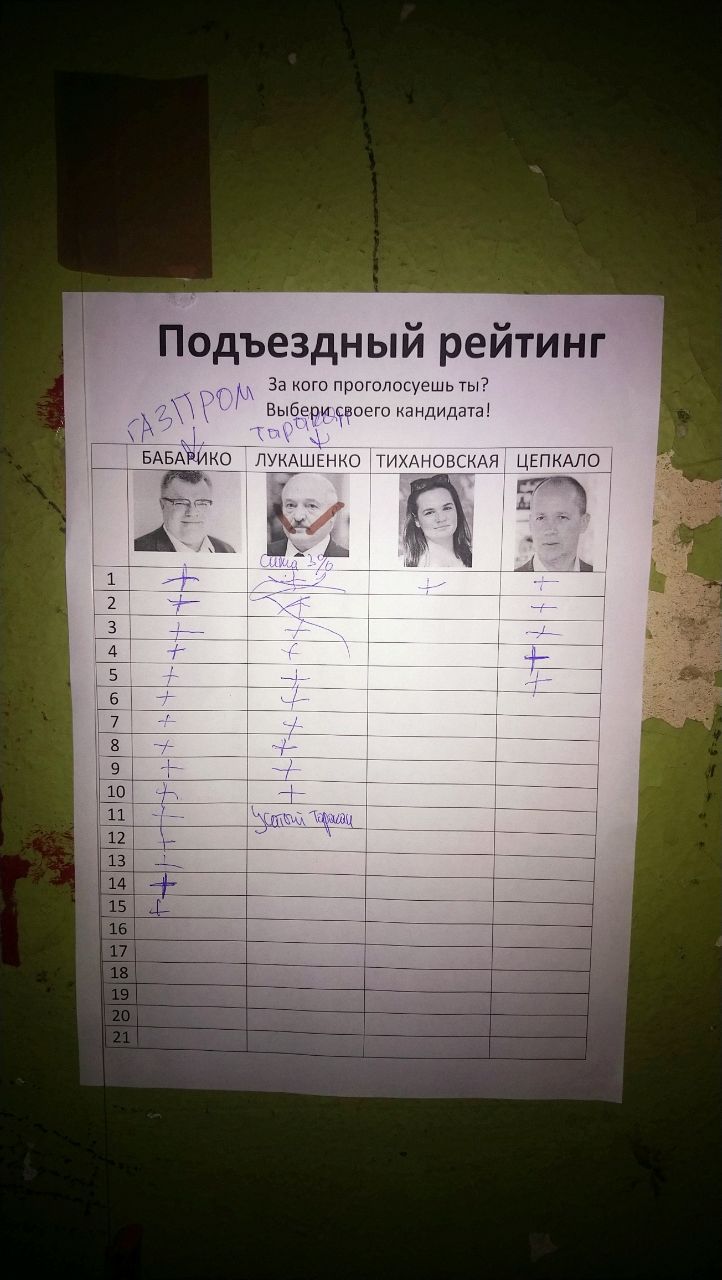 Подъездный рейтинг
За кого проголосуешь ты?
Выбери своего кандидата!
ГАЗПРОМ таракан
БАБАРИКО ЛУКАШЕНКО ТИХАНОВСКАЯ ЦЕПКАЛО
Саша 3%
1 + + + +
2 + + +
3 + + +
4 + + +
5 + + +
6 + +
7 + +
8 + +
9 + +
10 + +
11 + Усатый Таракан
12 +
13 +
14 +
15 +
16
17
18
19
20
21